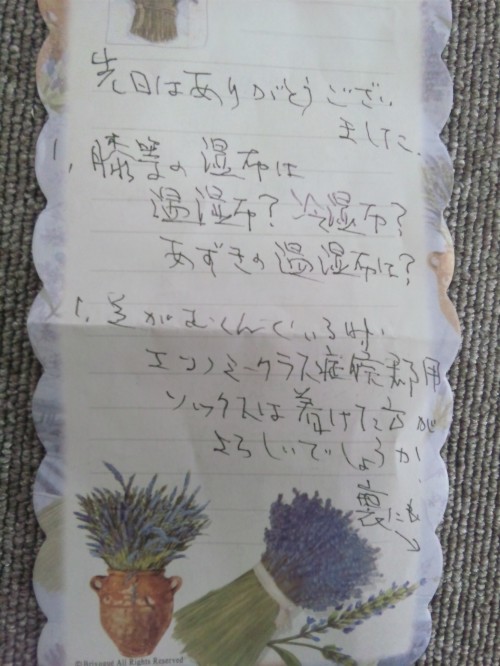 先日はありがとうござい
ました.
1. 膝等の湿布は
温湿布? 冷湿布?
あずきの温湿布は?
1. 足がむくんでいる時、
エコノミークラス症候郡用
ソックスは着けた方が
よろしいでしょうか
裏にも
All Rights Reserved